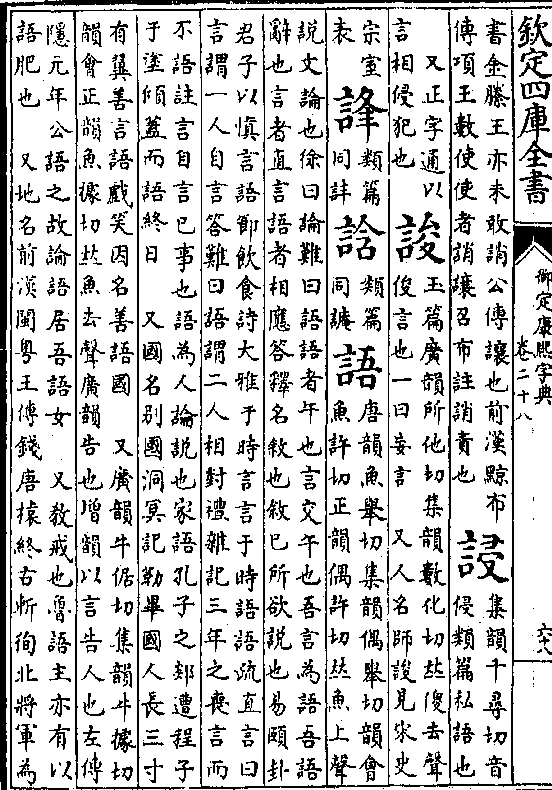 欽定四庫全書
御定康熙字典
卷二十八
六十八
書金縢王亦未敢誚公傳讓也前漢黥布
傳項王數使使者誚讓召布註誚責也
誛集韻千尋切音侵類篇私語也
又正字通以言相侵犯也
誜玉篇廣韻所化切集韻數化切𠀤傻去聲俊言也一曰妄言
又人名師誜見宋史宗室表
𧧽類篇同詳
𧨳類篇同謔
語唐韻魚舉切集韻偶舉切韻會魚許切正韻偶許切𠀤魚上聲
說文論也徐曰論難曰語語者午也言交午也吾言為語吾語
辭也言者直言語者相應答釋名敘也敘已所欲說也易頤卦
君子以慎言語節飲食詩大雅于時言言于時語語疏直言曰
言謂一人自言答難曰語謂二人相對禮雜記三年之喪言而
不語註言自言已事也語為人論說也家語孔子之郯遭程子
于塗傾蓋而語終日 又國名别國洞冥記勒畢國人長三寸
有翼善言語戲笑因名善語國 又廣韻牛倨切集韻牛據切
韻會正韻魚據切𠀤魚去聲廣韻告也增韻以言告人也左傳
隱元年公語之故論語居吾語女 又教戒也魯語主亦有以
語肥也 又地名前漢閩粤王傳錢唐榬終古斬徇北將軍為